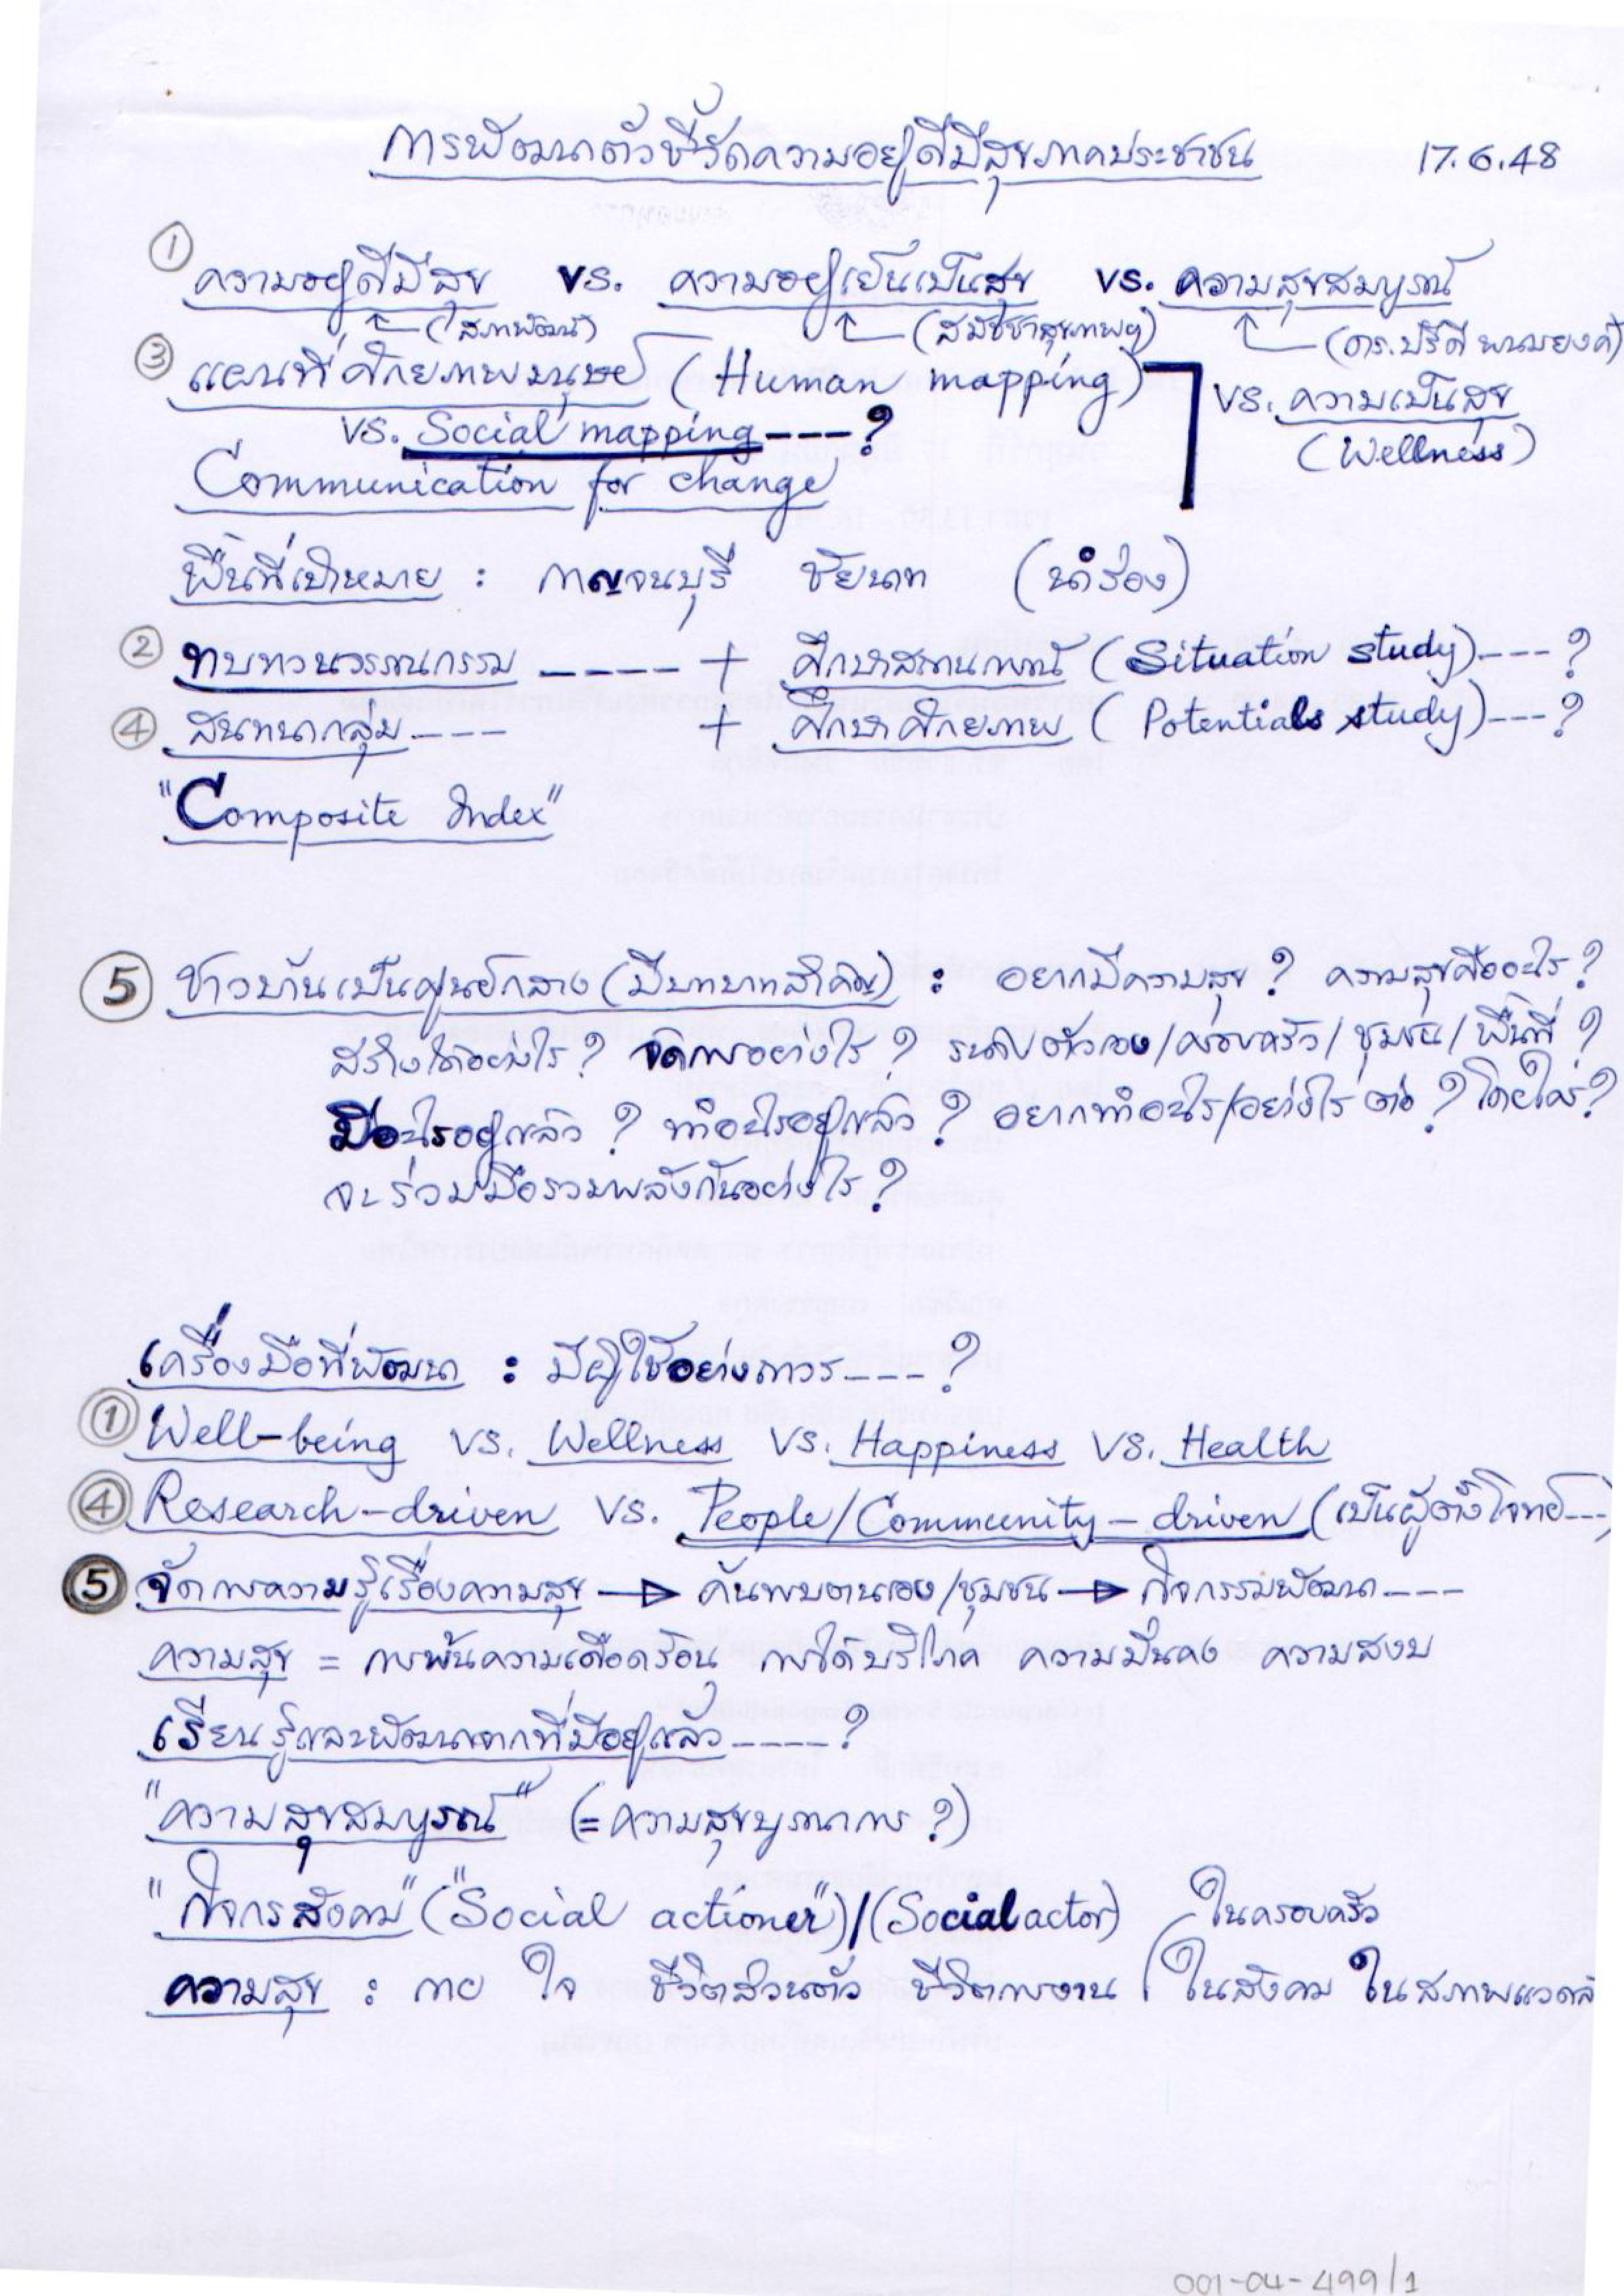 การพัฒนาตัวชี้วัดความอยู่ดีมีสุขภาคประชาชน 17.6.48
① ความอยู่ดีมีสุข vs. ความอยู่เย็นเป็นสุข vs. ความสุขสมบูรณ์
(สภาพัฒน์) (สมัชชาสุขภาพฯ) (ดร.ปรีดี พนมยงค์)
③ แผนที่ศักยภาพมนุษย์ (Human mapping) vs. ความเป็นสุข
vs. Social mapping ---? (Wellness)
Communication for change
พื้นที่เป้าหมาย : กาญจนบุรี ชัยนาท (นำร่อง)
② ทบทวนวรรณกรรม ----- + ศึกษาสถานการณ์ (Situation study)---?
④ สนทนากลุ่ม ---- + ศึกษาศักยภาพ (Potentials study)---?
"Composite Index"
⑤ ชาวบ้านเป็นศูนย์กลาง (มีบทบาทสำคัญ) : อยากมีความสุข? ความสุขคืออะไร?
สร้างได้อย่างไร? จัดการอย่างไร? ระดับตัวเอง/ครอบครัว/ชุมชน/พื้นที่?
มีอะไรอยู่แล้ว? ทำอะไรอยู่แล้ว? อยากทำอะไร/อย่างไรต่อ? โดยใคร?
จะร่วมมือรวมพลังกันอย่างไร?
เครื่องมือที่พัฒนา : มีผู้ใช้อย่างถาวร----?
① Well-being vs. Wellness vs. Happiness vs. Health
④ Research-driven vs. People/Community-driven (เป็นผู้ตั้งโจทย์---)
⑤ จัดการความรู้เรื่องความสุข → ค้นพบตนเอง/ชุมชน → กิจกรรมพัฒนา----
ความสุข = การพ้นความเดือดร้อน การได้บริโภค ความมั่นคง ความสงบ
เรียนรู้และพัฒนาจากที่มีอยู่แล้ว----?
"ความสุขสมบูรณ์" (=ความสุขบูรณาการ?)
"กิจกรสังคม" ("Social actioner")/(Social actor) ในครอบครัว
ความสุข : กาย ใจ ชีวิตส่วนตัว ชีวิตการงาน ในสังคม ในสภาพแวดล้
001-04-499/1